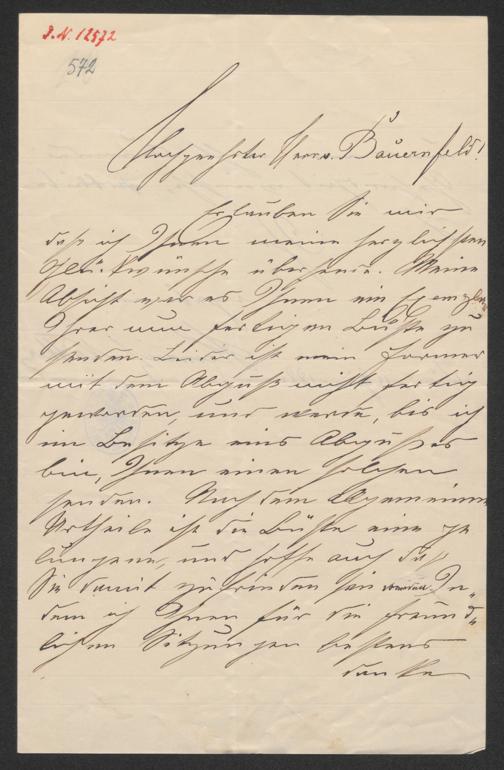 J.N. 12572
572
Hochgeehrter Herr v. Bauernfeld!
Erlauben Sie mir
daß ich Ihnen meine herzlichsten
Glückwünsche übersende. Meine
Absicht war es Ihnen ein Exemplar
Ihrer nun fertigen Büste zu
senden. Leider ist mein Former
mit dem Abguß nicht fertig
geworden, und werde, bis ich
im Besitze eins Abgußes
bin, Ihnen einen solchen
senden. Nach dem Allgemeinen
Urtheile ist die Büste eine ge
lungene, und hoffe auch daß
Sie damit zufrieden sein werden. In„
dem ich Ihnen für die freund„
lichen Sitzungen bestens
danke